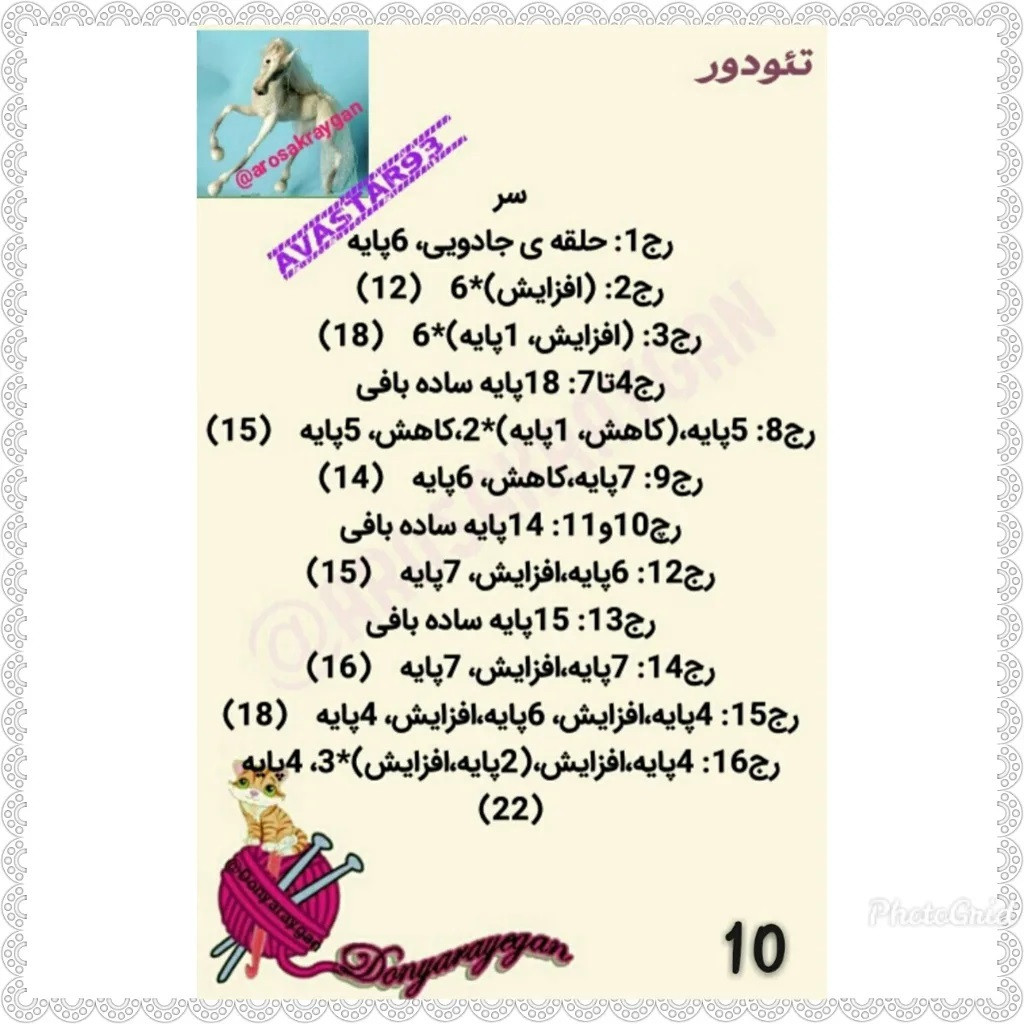 تئودور
@arosakraygan
AVASTAR93
سر
رج1: حلقه ی جادویی، 6پایه
رج2: (افزایش)*6 (12)
رج3: (افزایش، 1پایه)*6 (18)
رج4تا7: 18پایه ساده بافی
رج8: 5پایه،(کاهش، 1پایه)*2،کاهش، 5پایه (15)
رج9: 7پایه،کاهش، 6پایه (14)
رچ10و11: 14پایه ساده بافی
رج12: 6پایه،افزایش، 7پایه (15)
رج13: 15پایه ساده بافی
رج14: 7پایه،افزایش، 7پایه (16)
رج15: 4پایه،افزایش، 6پایه،افزایش، 4پایه (18)
رج16: 4پایه،افزایش،(2پایه،افزایش)*3، 4پایه
(22)
@AROSAKRAYGAN
@Donyaraygan
Donyarayegan
10
PhotoGrid